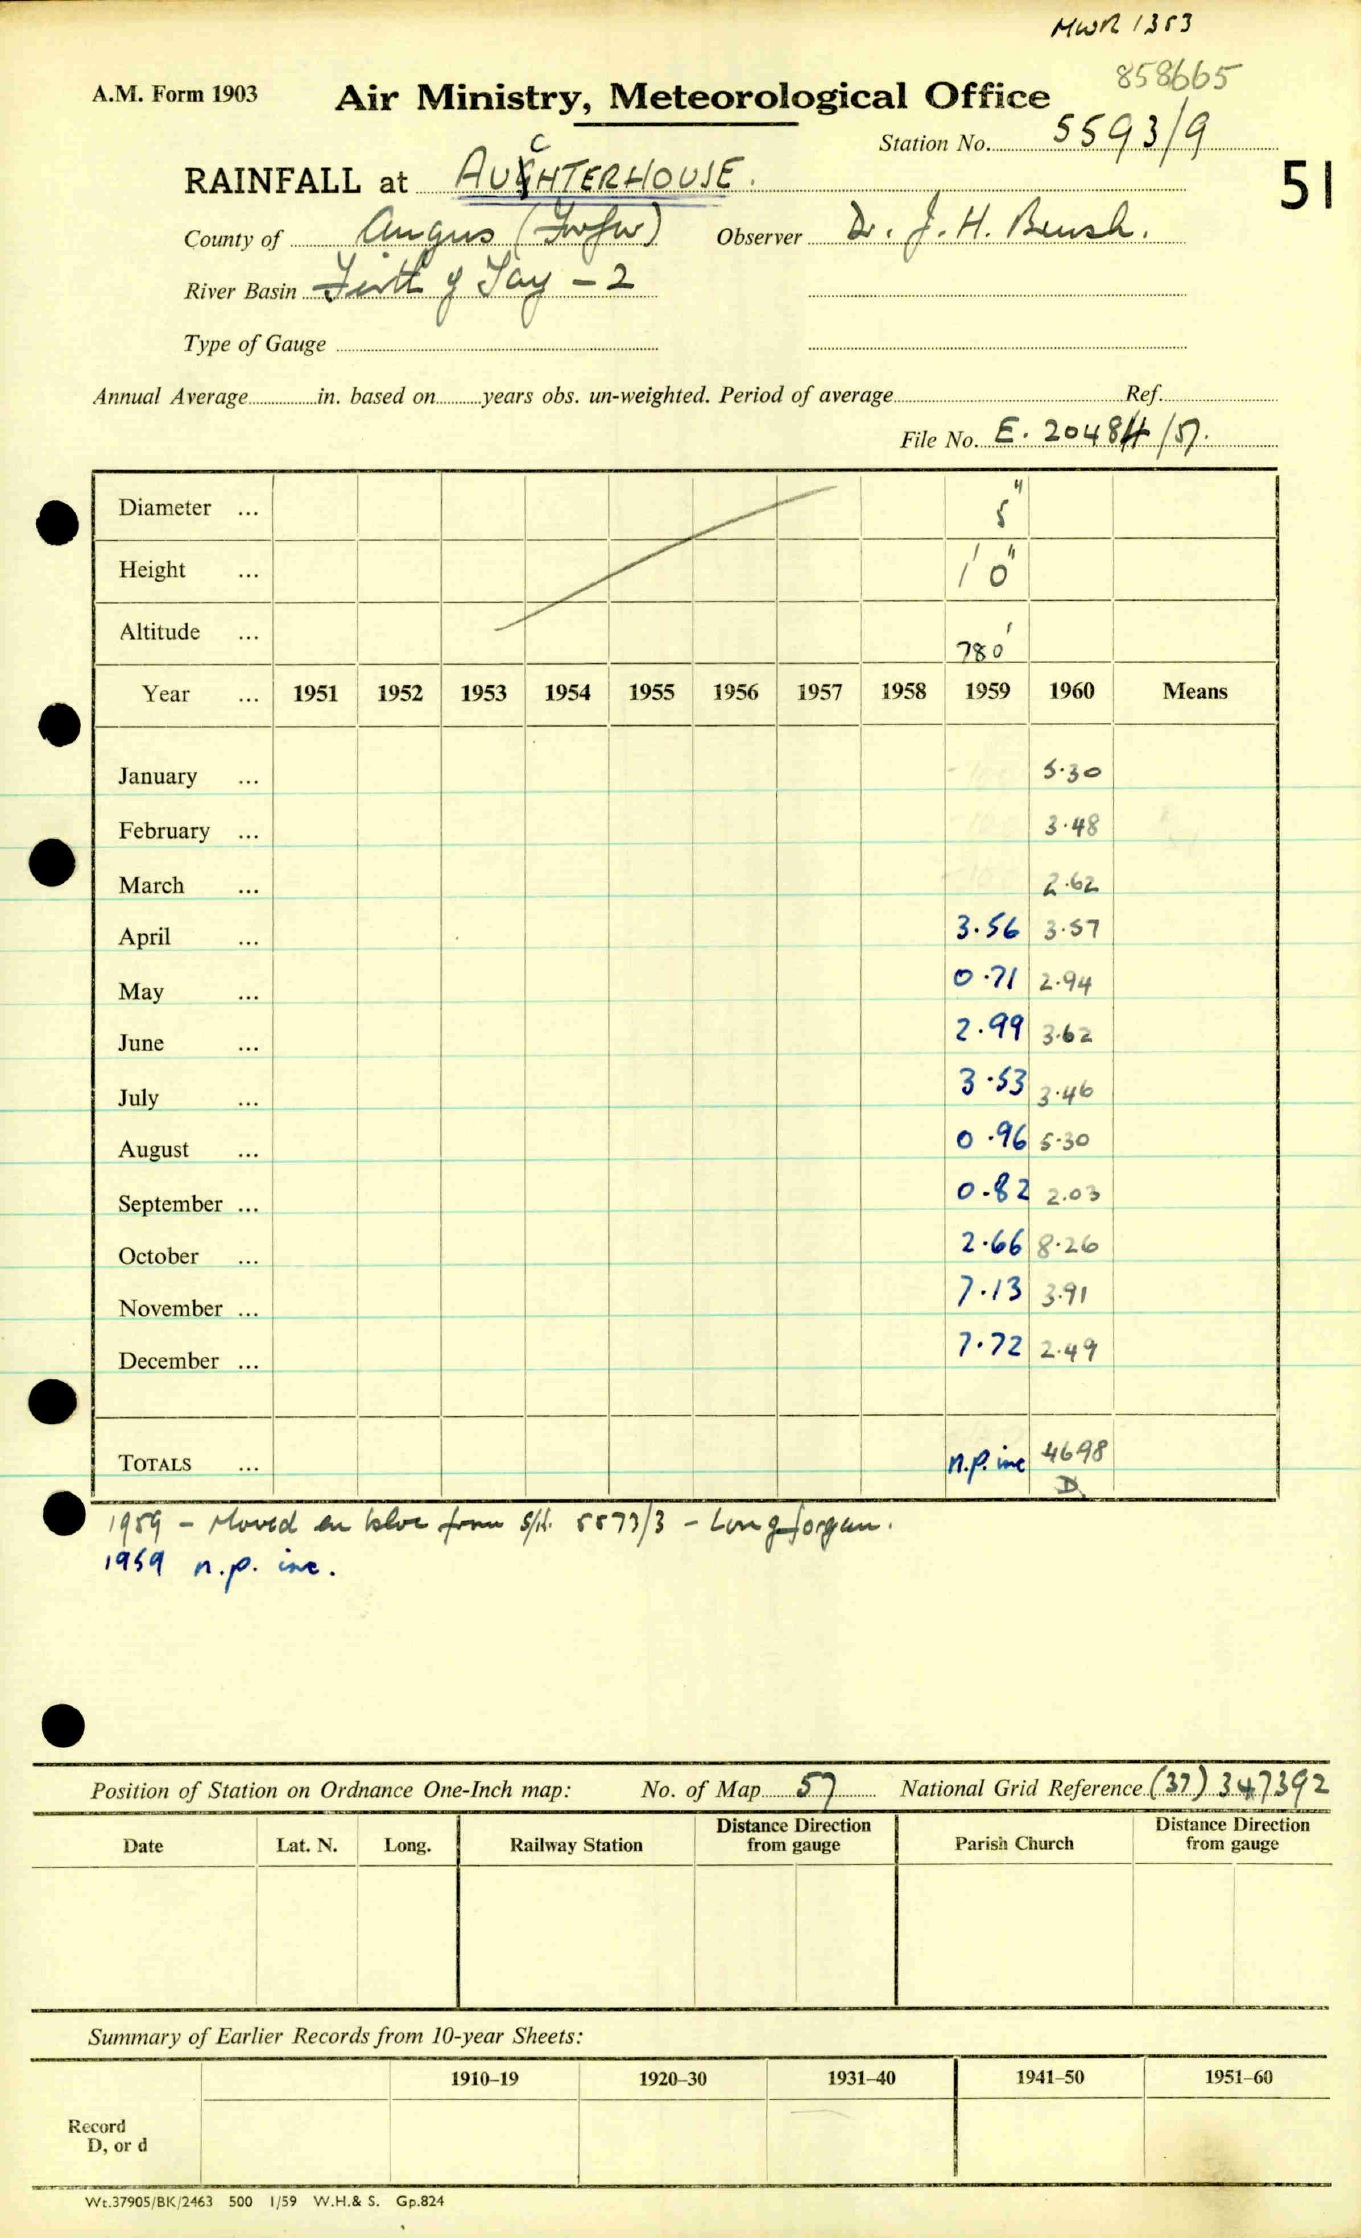 MWR 1353
858665
A.M. Form 1903 Air Ministry, Meteorological Office
Station No. 5593/9
RAINFALL at AUCHTERHOUSE. 51
County of Angus (Forfar) Observer Dr. J. H. Brush.
River Basin Firth of Tay – 2
Type of Gauge
Annual Average in. based on years obs. un-weighted. Period of average Ref.
File No. E. 20484/57.
Diameter ... 5"
Height ... 1' 0"
Altitude ... 780'
Year ... 1951 1952 1953 1954 1955 1956 1957 1958 1959 1960 Means
January ... 5.30
February ... 3.48
March ... 2.62
April ... 3.56 3.57
May ... 0.71 2.94
June ... 2.99 3.62
July ... 3.53 3.46
August ... 0.96 5.30
September ... 0.82 2.03
October ... 2.66 8.26
November ... 7.13 3.91
December ... 7.72 2.49
TOTALS ... n.p. inc 4698
D
1959 – Moved en bloc from 5573/3 – Longforgan.
1959 n.p. inc.
Position of Station on Ordnance One-Inch map: No. of Map 57 National Grid Reference (37) 347392
Date Lat. N. Long. Railway Station Distance Direction from gauge Parish Church Distance Direction from gauge
Summary of Earlier Records from 10-year Sheets:
1910–19 1920–30 1931–40 1941–50 1951–60
Record
D, or d
Wt.37905/BK/2463 500 1/59 W.H.& S. Gp.824